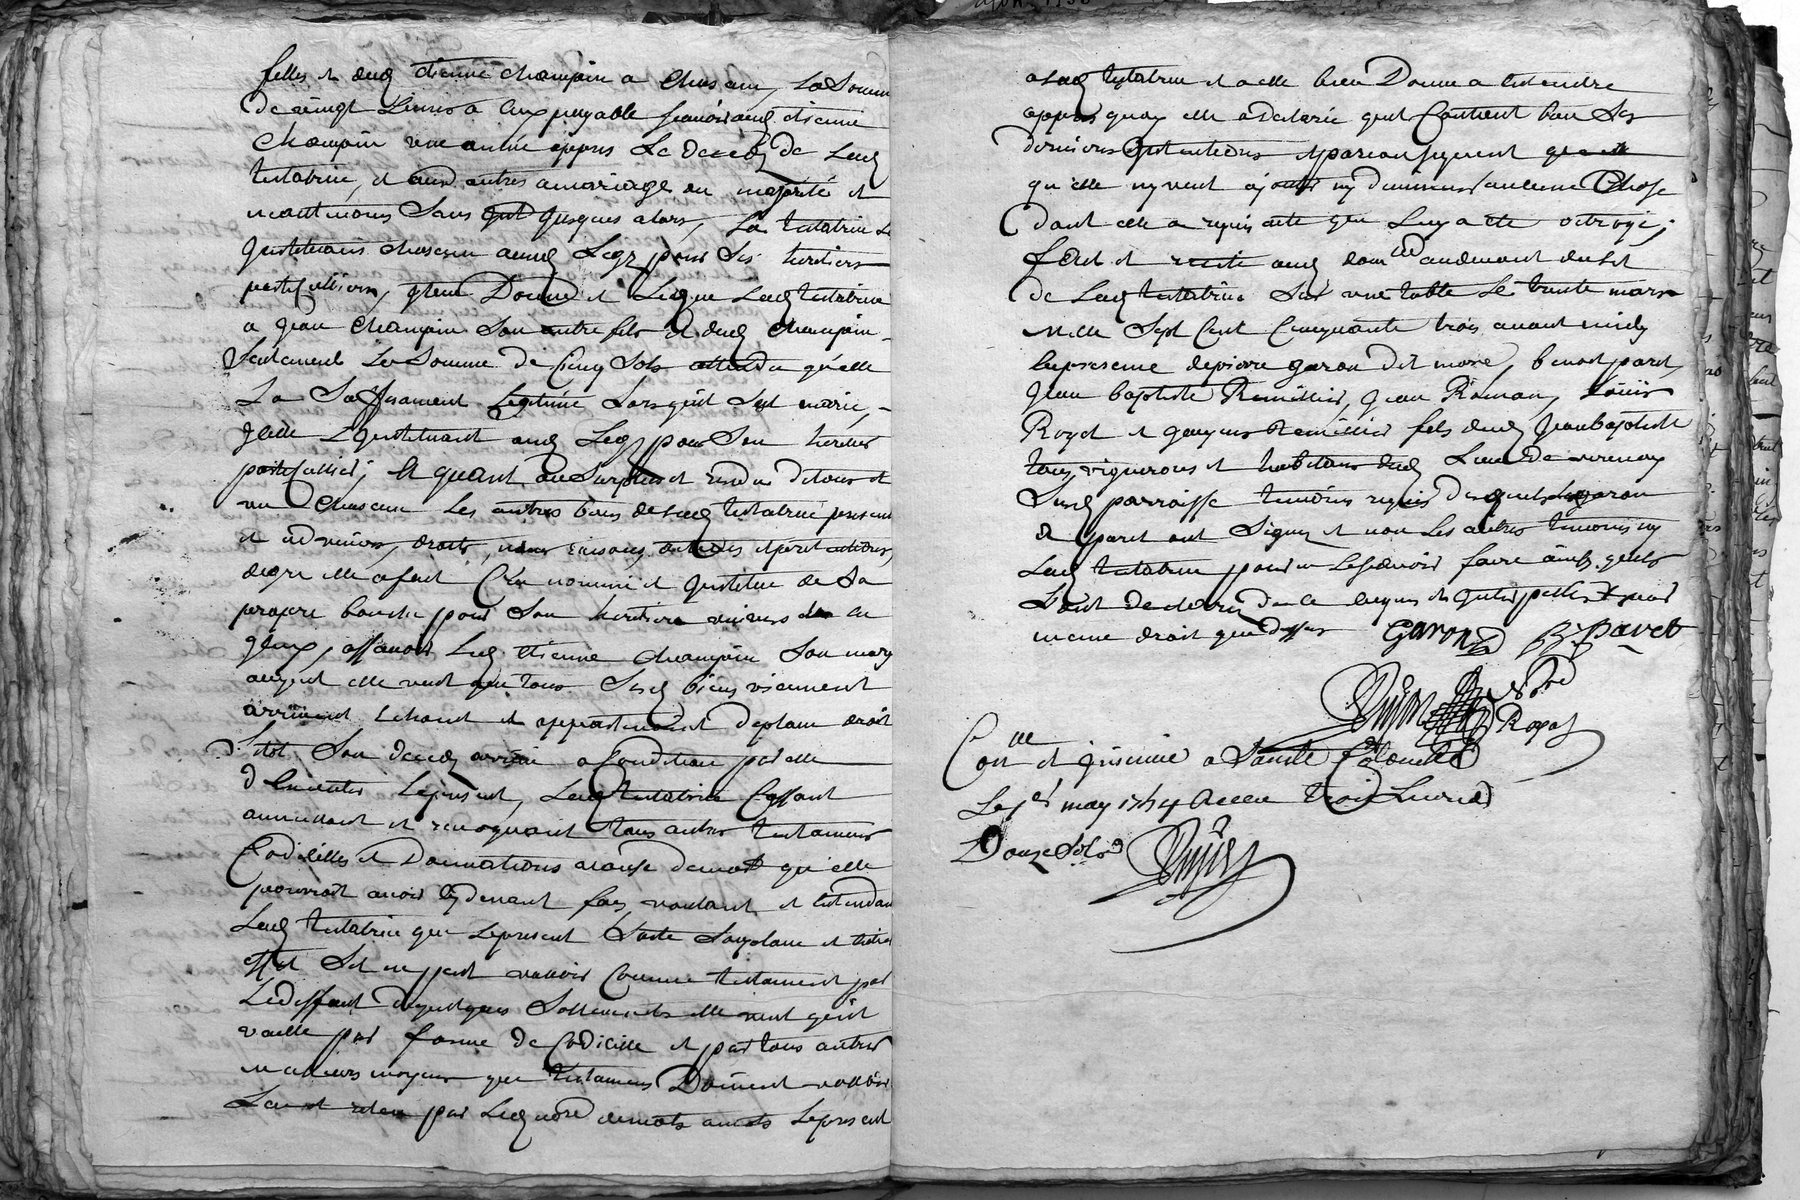 filles et dud etienne champin a chascun, La Somme
de vingt Livres a Eux payable scavoir aud etienne
champin une année apprès Le deces de Lad
testatrice, et aux autres a mariage ou majorité et
neantmoins Sans jusques alors, La testatrice Les
Instituans chascun aud Legz pour Ses heritiers
particulliers, Item Donne et Legue Lad testatrice
a Jean champin Son autre fils et dud champin
Seulement La Somme de Cinq Sols attendu qu'elle
La Suffisament Legitimé Lors qu'il Sest marié,
Icelle L'Instituant aud Legz pour Son heritier
particullier; Et quant au Surplus et residu de tous et
un Chascun Les autres biens de Lad testatrice presents
et advenirs, droits, noms raisons actions et pretentions,
de gré elle a fait Créé nommé et Institué de Sa
propre bouche pour Son heritier universel en
Iceux, assavoir Led Etienne champin Son mary
auquel elle veut que tous Sesd biens viennent
arrivent Echoient et appartiennent de plain droit
Sitot Son deces arrivé a Condition par elle
d'Executer Lepresent, Lad testatrice Cassant
annullant et revoquant tous autres testaments
Codicilles et Donnations a cause de mort qu'elle
pourroit avoir Cy devant fait, voulant et Entendant
Lad testatrice que Lepresent Sorte Son plain et Entier
effet Sil ne peut valloir Comme testament par
Le deffaut de quelques Sollemnités elle veut qu'il
vaille par forme de Codicille et par tous autres
meilleurs moyens que testaments Doivent valloir
Leu et releu par Led nore de mots a mots Lepresent
a Lad testatrice et a elle bien Donné a Entendre
apprès quoy elle a declaré quil Contient bien Ses
dernieres Intentions et par consequent
qu'elle ny veut ajouter ny diminuer aucune Chose
Dont elle a requis acte que Luy a été octroyé;
fait et recité aud dom au devant du lit
de Lad testatrice Sur une table Le trente mars
mille Sept Cent Cinquante trois avant midy
En presence de pierre garon dit more, benoit paret,
Jean baptiste Remillier, Jean Roman, Loüis
Royet et Remillier fils dud Jean baptiste
tous vignerons et habitans dud Lieu de verenay
Susd parroisse temoins requis desquels Lesd garon
et paret ont Signé et non Les autres temoins ny
Lad testatrice pour ne Le Scavoir faire ainsy quils
L'ont declaré de ce enquis et Interpellés par
meme droit que dessus Garon B. Paret
Nore Royal
Conlle et Insinué a Sainte Colombe
Le 1er may 1754 Receu trois Livres
Douze Sols